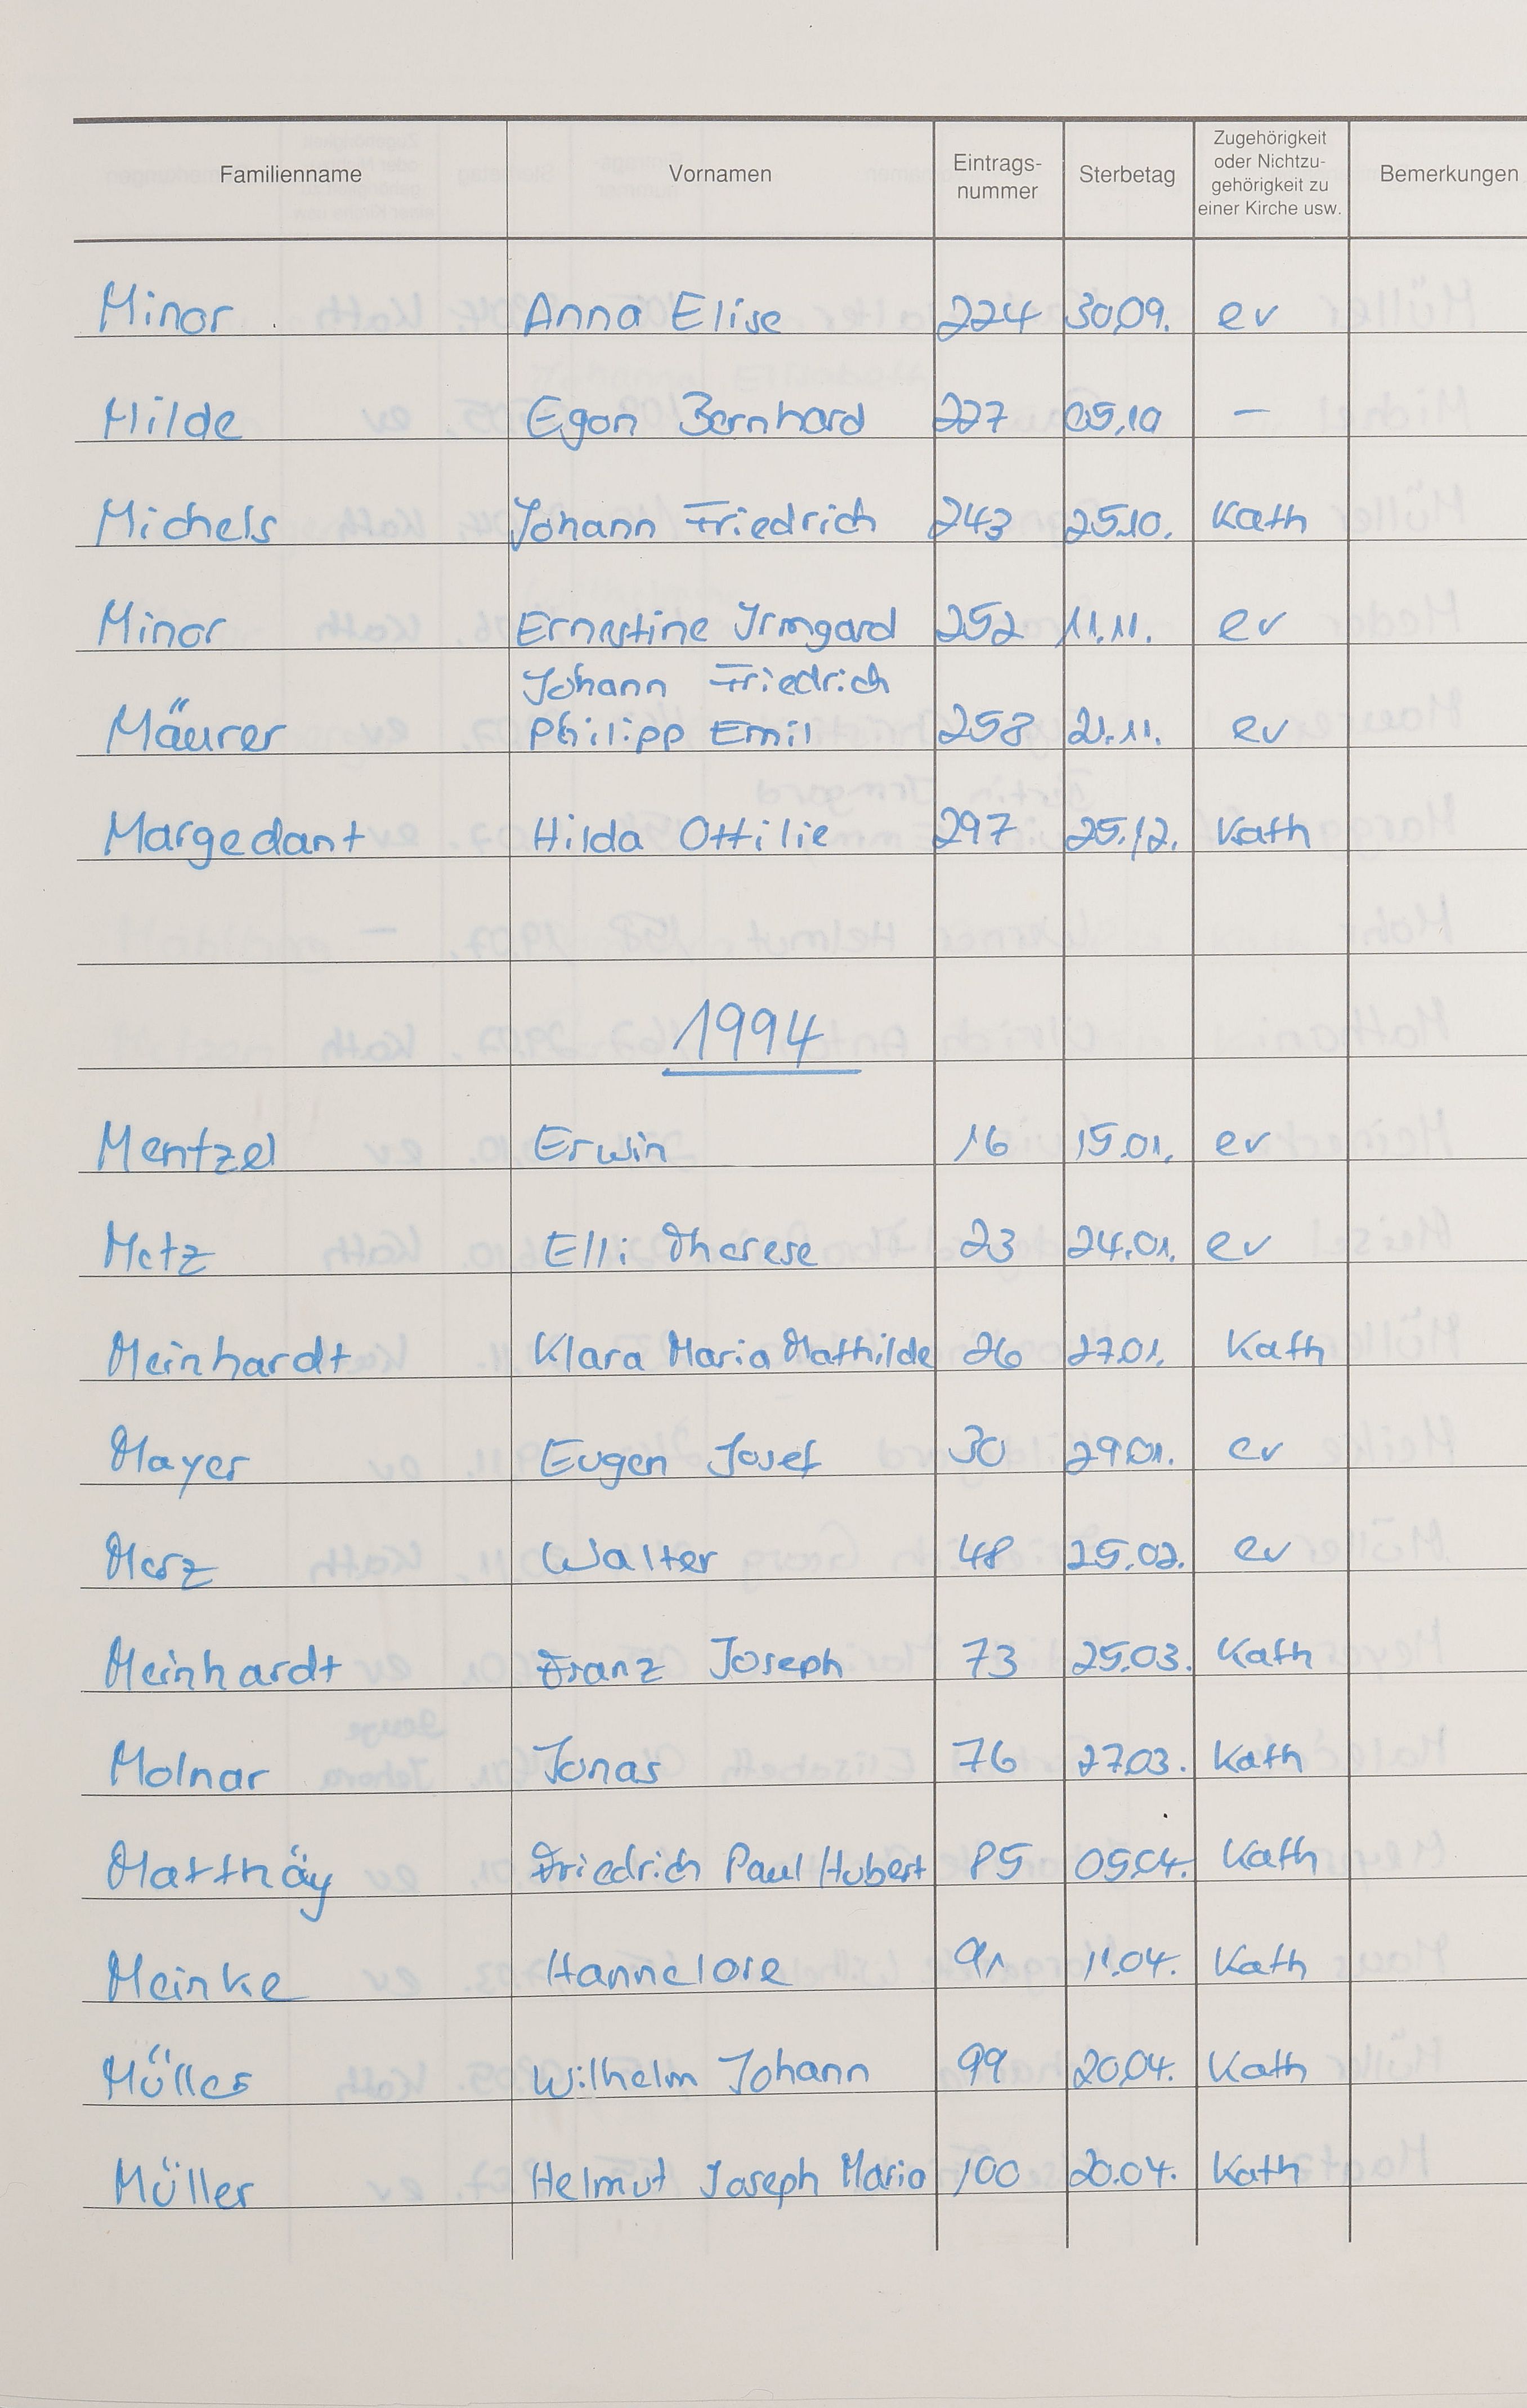 Familienname Vornamen Eintrags-nummer Sterbetag Zugehörigkeit oder Nichtzu-gehörigkeit zu einer Kirche usw. Bemerkungen
Minor Anna Elise 224 30.09. ev
Milde Egon Bernhard 227 05.10 —
Michels Johann Friedrich 243 25.10. Kath
Minor Ernestine Irmgard 252 11.11. ev
Johann Friedrich
Mäurer Philipp Emil 258 21.11. ev
Margedant Hilda Ottilie 297 25.12. Kath
1994
Mentzel Erwin 16 15.01. ev
Metz Elli Therese 23 24.01. ev
Meinhardt Klara Maria Mathilde 26 27.01. Kath
Mayer Eugen Josef 30 29.01. ev
Merz Walter 48 25.02. ev
Meinhardt Franz Joseph 73 25.03. Kath
Molnar Jonas 76 27.03. Kath
Matthäy Friedrich Paul Hubert 85 05.04. Kath
Meinke Hannelore 91 11.04. Kath
Müller Wilhelm Johann 99 20.04. Kath
Müller Helmut Joseph Maria 100 20.04. Kath